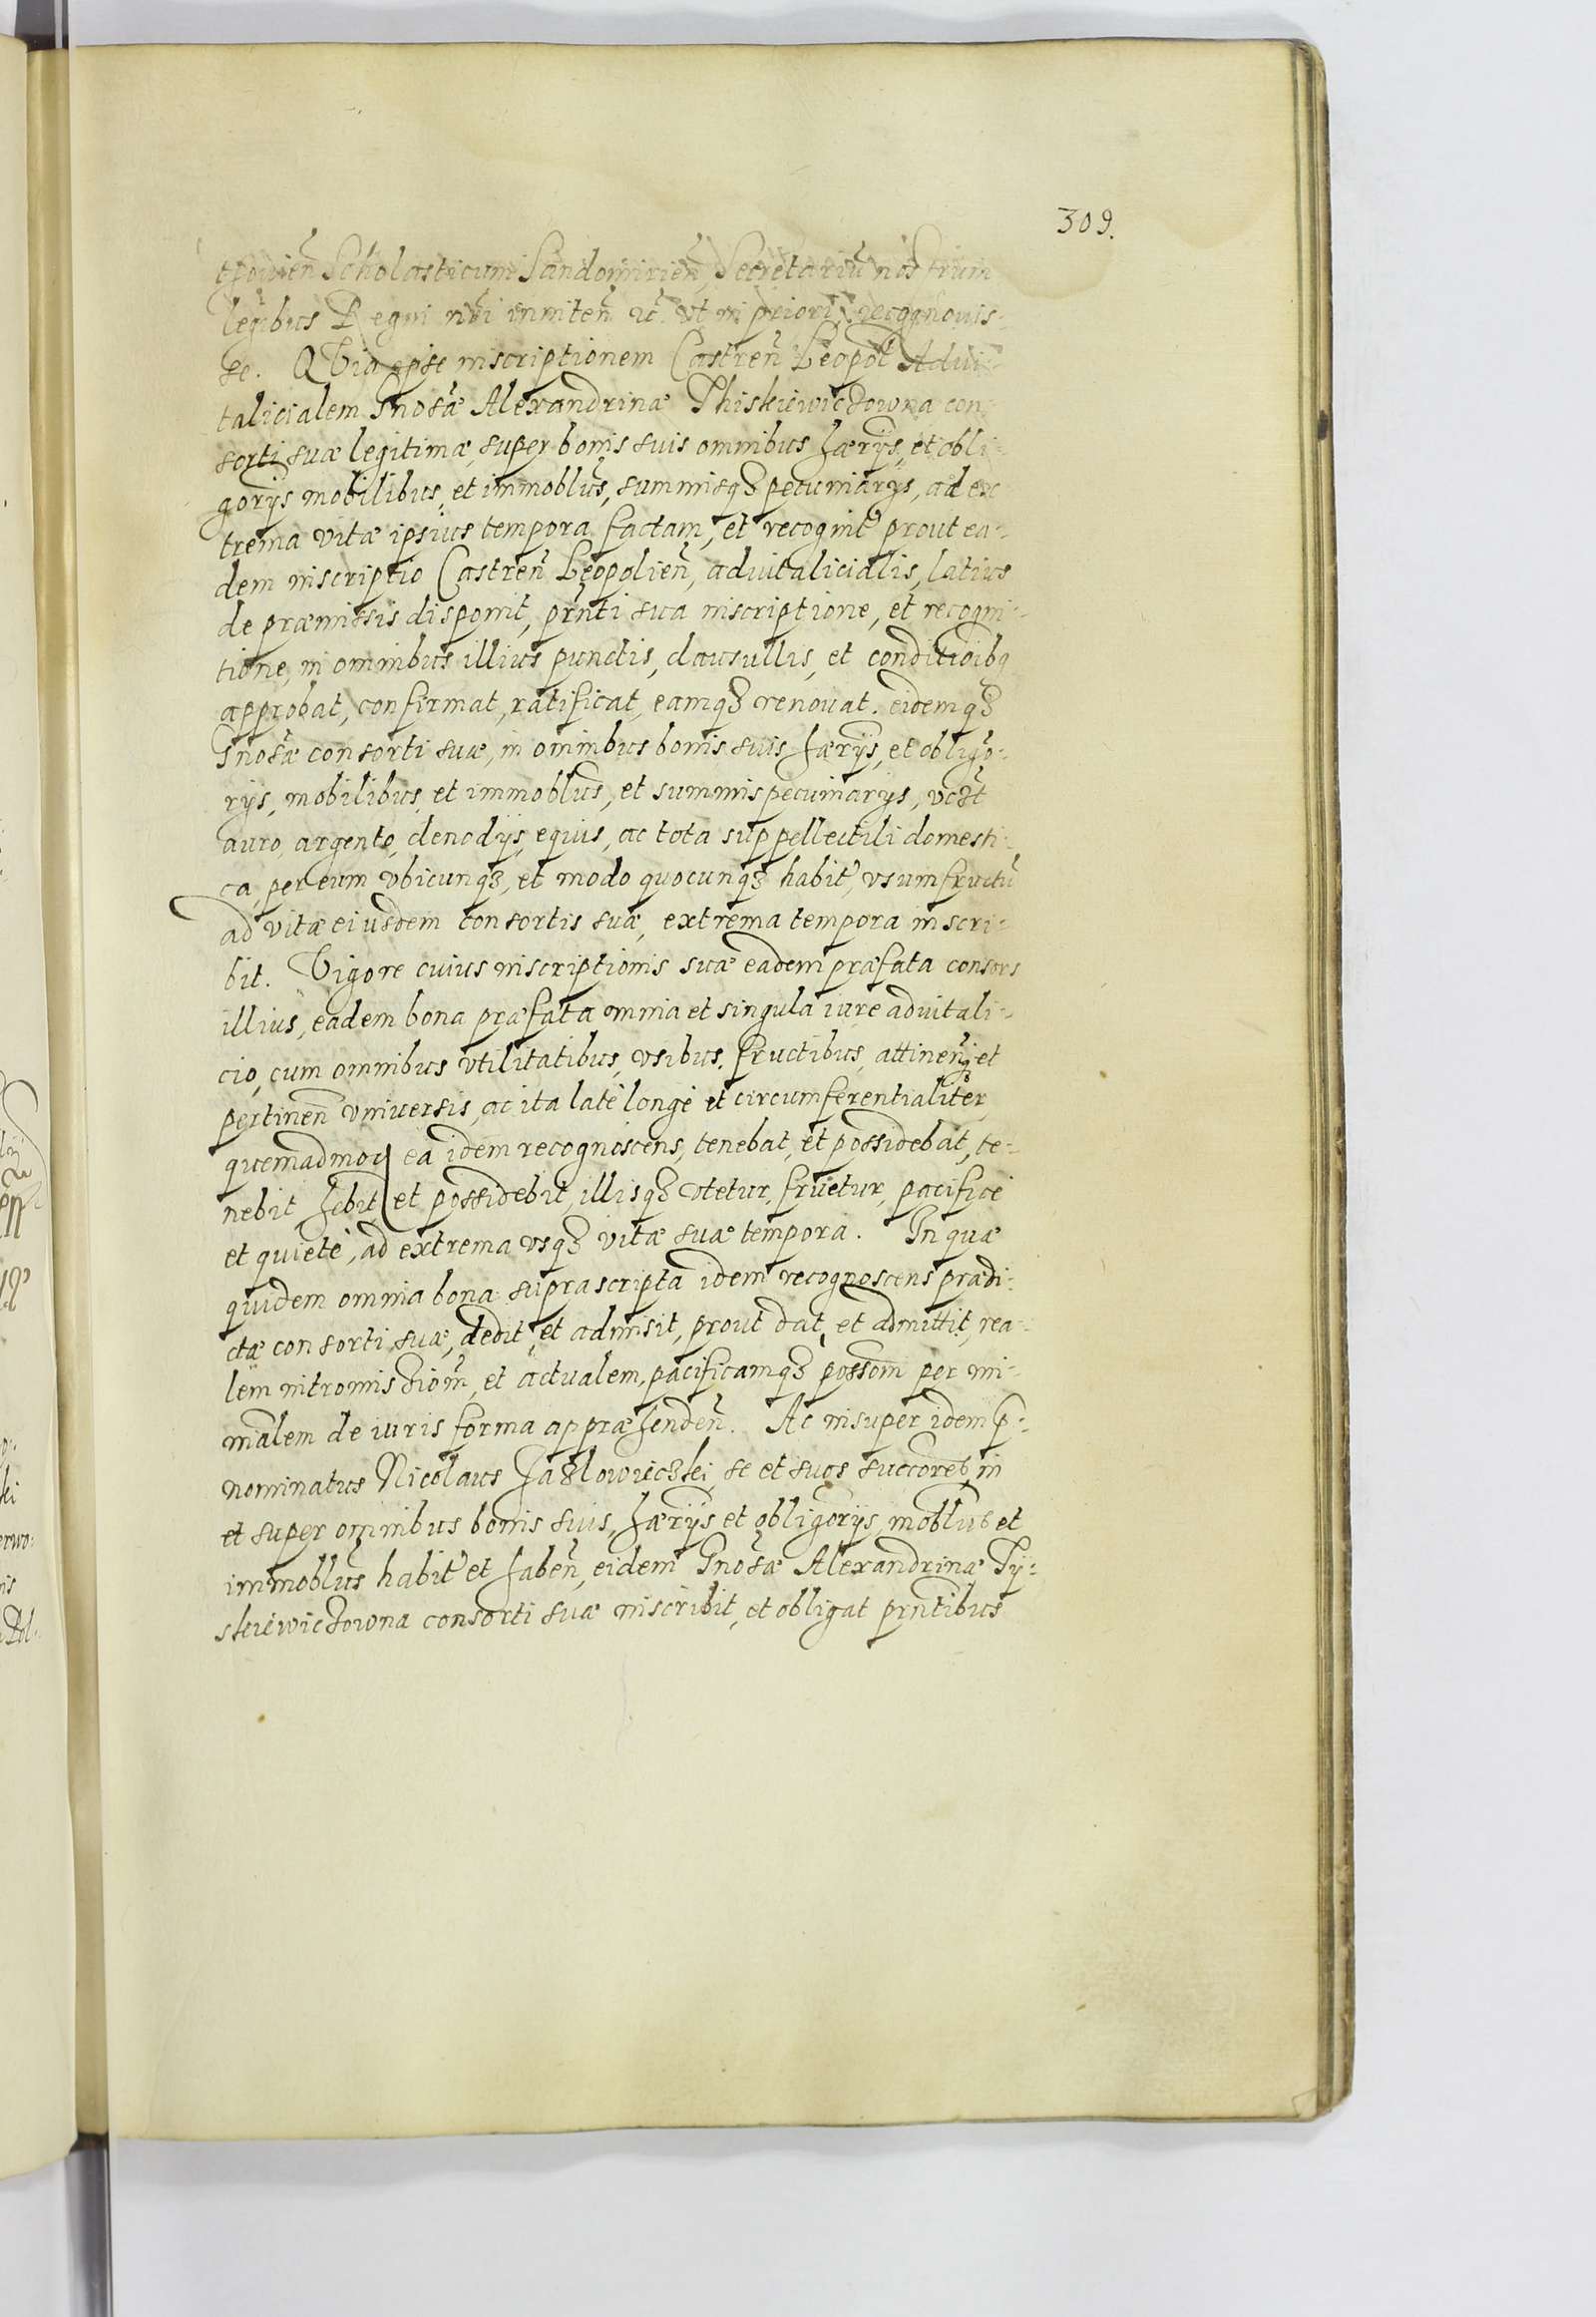 309.
Scholasticum Sandomirien̄, Secretariū nostrum
legibus Regni nr̄i inniten̄ ut in priori recognouis-
se. Quia ipse inscriptionem Castren̄ Leopol̄ Adui-
talicialem Gnosæ Alexandrinæ Thiskiewiczowna con-
sorti suæ legitimæ, super bonis suis omnibus hærijs, et obli-
gorijs mobilibus, et immoblūs, summisqȝ pecuniarijs, ad ex-
trema vitæ ipsius tempora factam, et recognit' prout ea-
dem inscriptio Castren̄ Leopolien̄, aduitalicialis, latius
de præmissis disponit, prn̄ti sua inscriptione, et recogni-
tione, in omnibus illius punctis, clausullis, et conditioībq
approbat, confirmat, ratificat, eamqȝ renouat. eidemqȝ
Gnosæ consorti suæ, in omnibus bonis suis hærijs, et obligo-
rijs, mobilibus, et immoblūs, et summis pecuniarijs, vcȝt
auro, argento, clenodijs, equis, ac tota suppellectili domesti-
ca, per eum vbicunqȝ, et modo quocunqȝ habit', vsumfructū
ad vitæ eiusdem consortis suæ, extrema tempora inscri-
bit. Vigore cuius inscriptionis suæ eadem præfata consors
illius, eadem bona præfata omnia et singula iure aduitali-
cio, cum omnibus vtilitatibus, vsibus, fructibus, attinen̄ et
pertinen̄ vniuersis, ac ita latè longè et circumferentialiter,
quemadmoy ea idem recognoscens, tenebat, et possidebat, te-
nebit hebit et possidebit, illisqȝ vtetur, fruetur, pacificè
et quietè, ad extrema vsqȝ vitæ suæ tempora. In quæ
quidem omnia bona suprascripta idem recognoscens prædi-
ctæ consorti suæ, dedit, et admisit, prout dat, et admittit, rea-
lem intromissiom̄, et actualem, pacificamqȝ possom̄ per mi-
nalem de iuris forma appræhenden̄. Ac insuper idem p-
nominatus Nicolaus Jazlowieczki, se et suos succores, in
et super omnibus bonis suis, hærijs et obligorijs, moblūs et
immoblūs habit' et haben̄, eidem Gnosæ Alexandrinæ Ty-
skiewiczowna consorti suæ inscribit, et obligat prn̄tibus